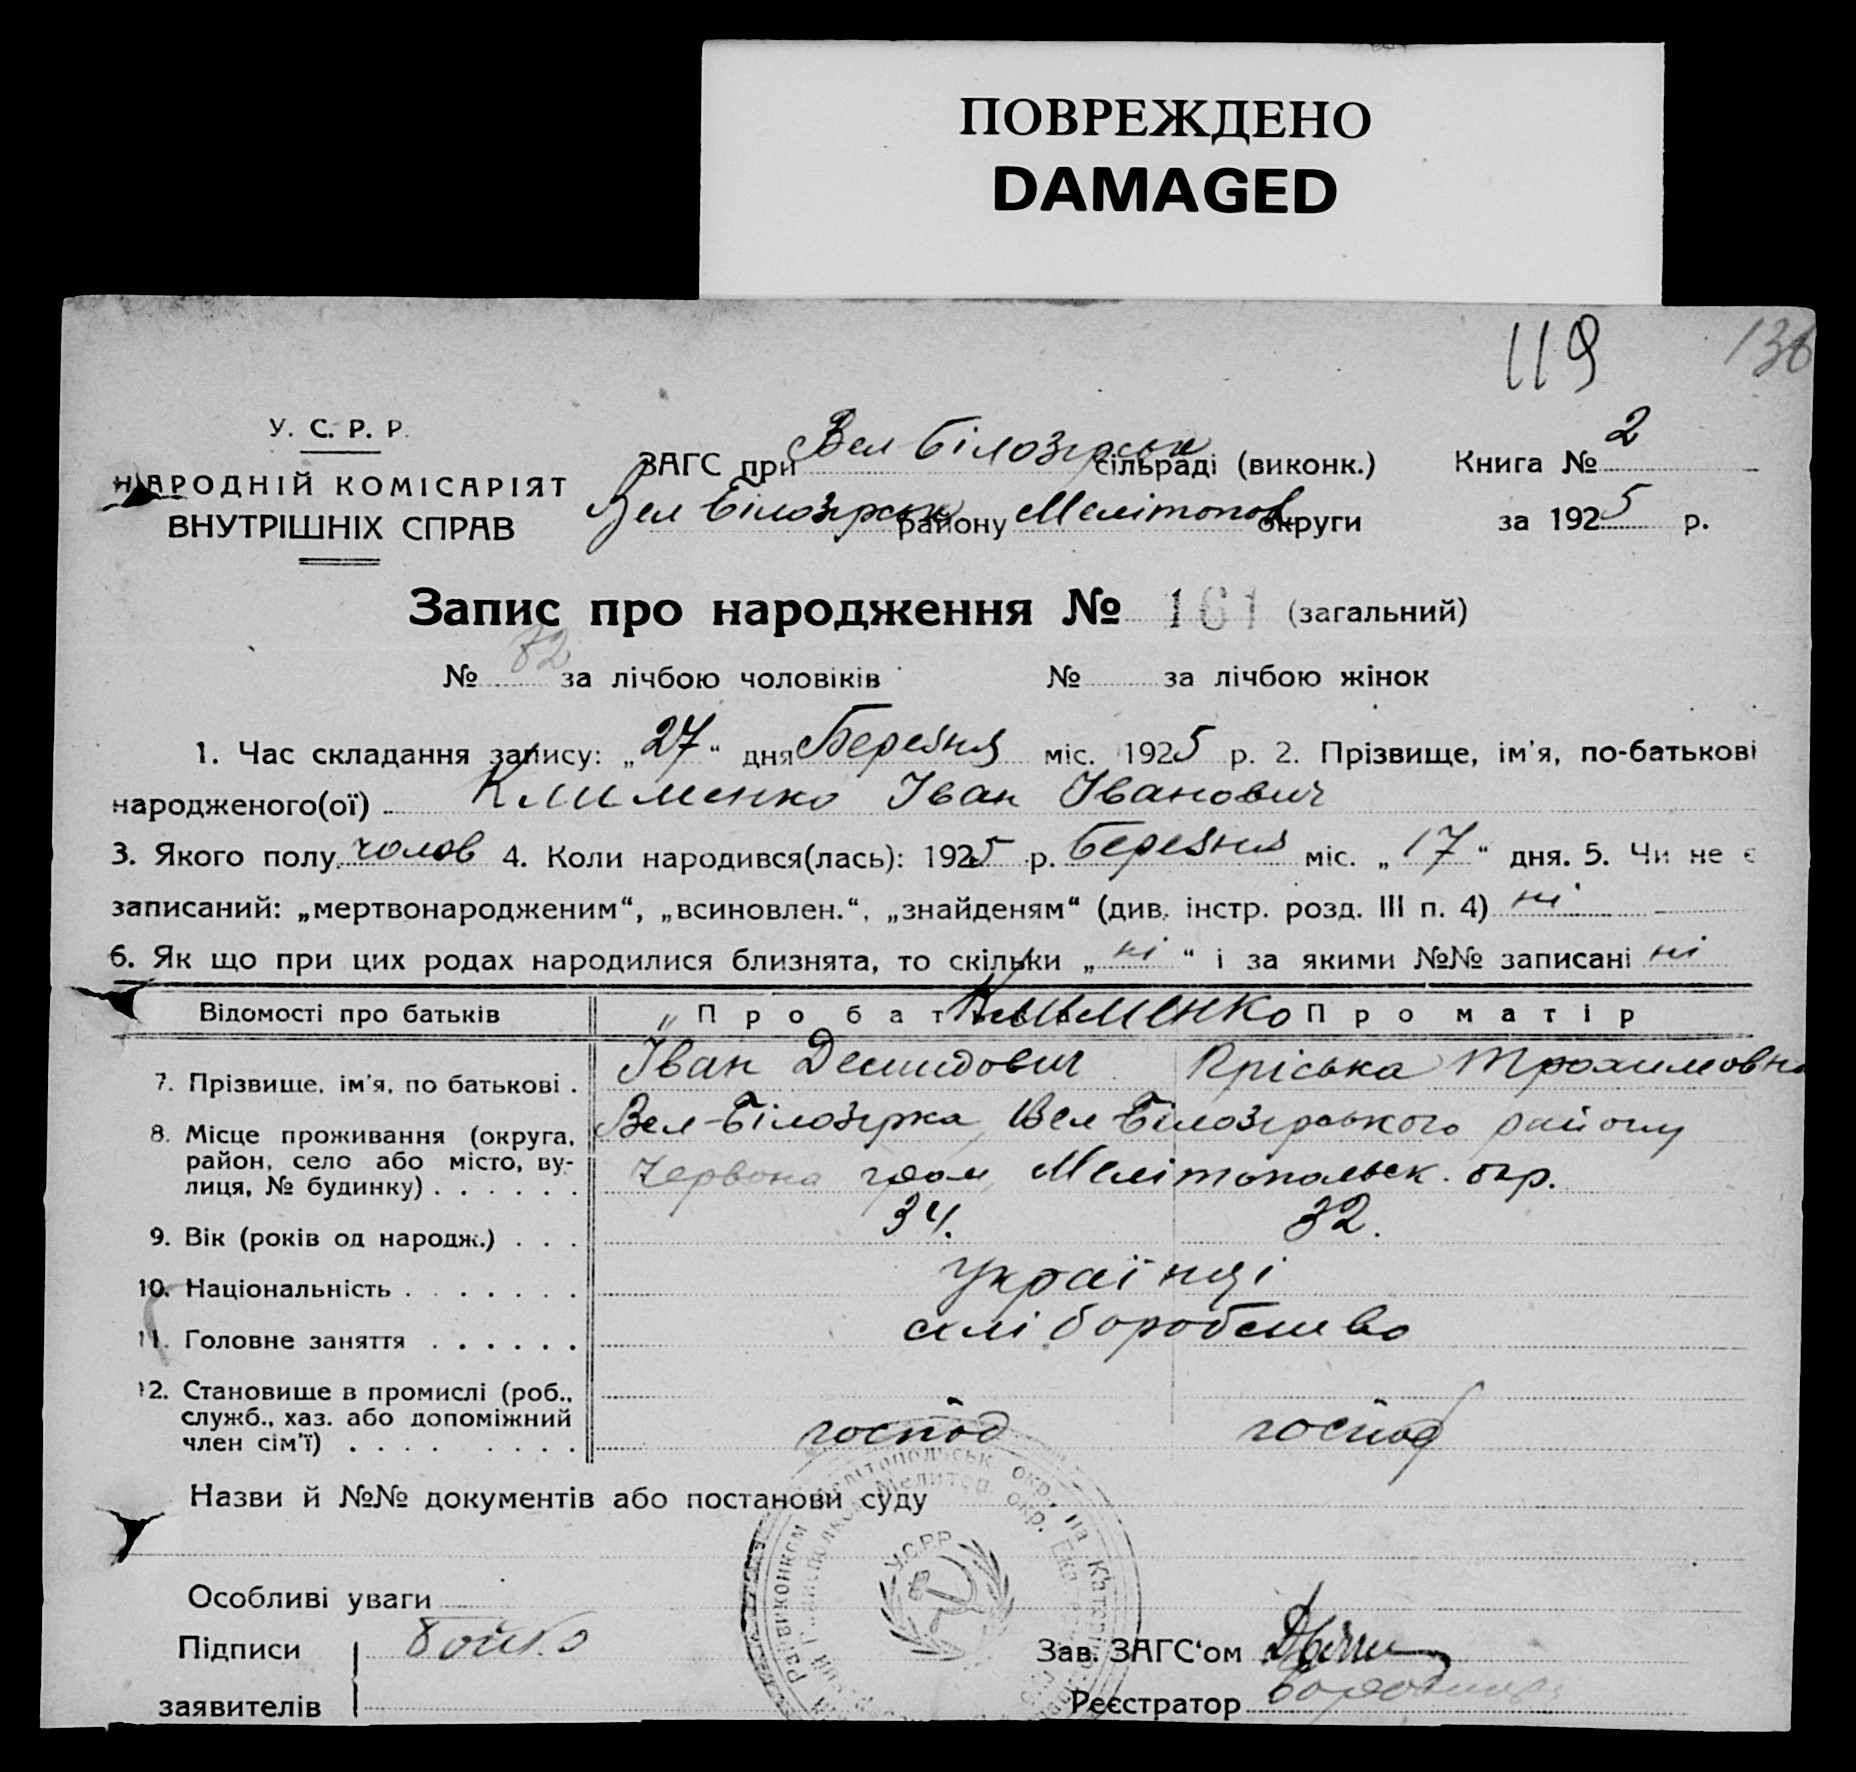 ПОВРЕЖДЕНО
DAMAGED
119 136
У. С. Р. Р.
НАРОДНІЙ КОМІСАРІЯТ
ВНУТРІШНІХ СПРАВ
ЗАГС при Вел Білозірськ сільраді (виконк.) Книга № 2
Вел Білозірськ району Мелітопол округи за 1925 р.
Запис про народження № 161 (загальний)
№ 82 за лічбою чоловіків № за лічбою жінок
1. Час складання запису: „27“ дня Березня міс. 1925 р. 2. Прізвище, ім'я, по-батькові
народженого(ої) Клименко Іван Іванович
3. Якого полу чолов 4. Коли народився(лась): 1925 р. Березня міс. „17“ дня. 5. Чи не є
записаний: „мертвонародженим“, „всиновлен.“, „знайденям“ (див. інстр. розд. III п. 4) ні
6. Як що при цих родах народилися близнята, то скільки „ні“ і за якими №№ записані ні
Відомості про батьків Про батька Клименко Про матір
7. Прізвище, ім'я, по батькові . Іван Демидович Пріська Трохимовна
8. Місце проживання (округа, Вел-Білозірка, Вел Білозірського району
район, село або місто, ву-
лиця, № будинку) . . . . . . Червона гром. Мелітопольск. окр.
9. Вік (років од народж.) . . . 34. 32.
10. Національність . . . . . . . Українці
11. Головне заняття . . . . . . хліборобство
12. Становище в промислі (роб.,
служб., хаз. або допоміжний
член сім'ї) . . . . . . . . господ господ
Назви й №№ документів або постанови суду
Особливі уваги
Підписи Бойко
заявителів
Зав. ЗАГС'ом
Реєстратор
У.С.Р.Р.